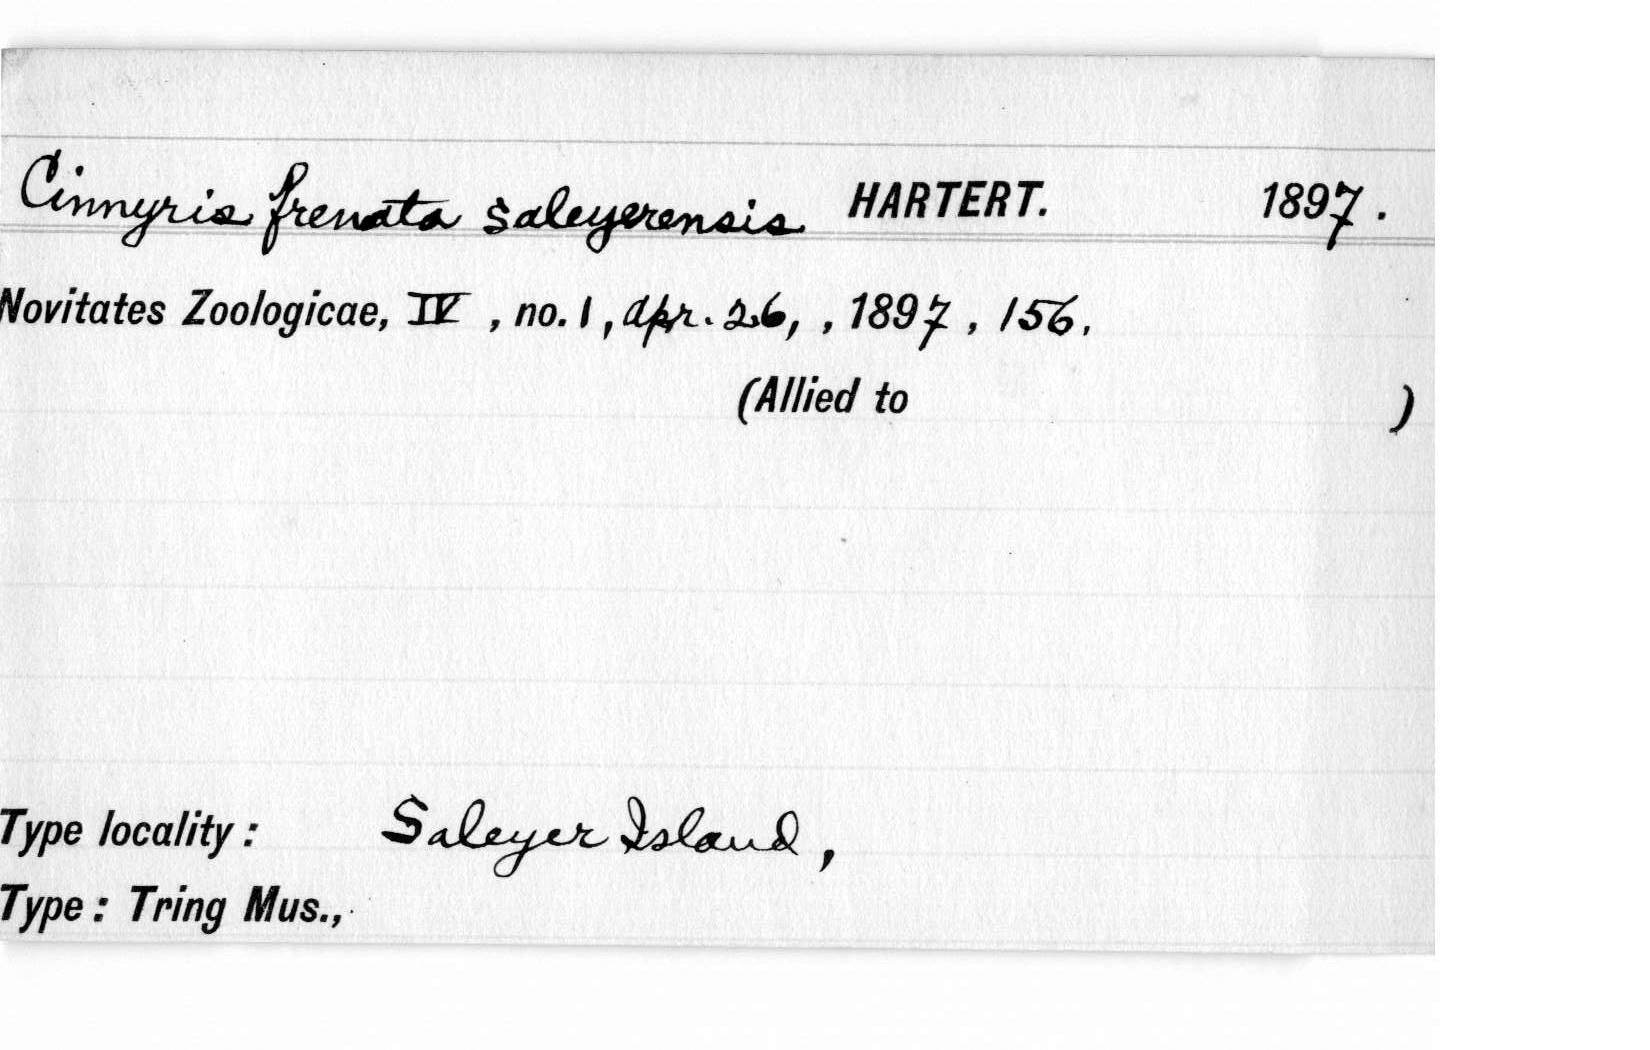 Cinnyris frenata saleyerensis HARTERT. 1897.
Novitates Zoologicae, IV, no. 1, Apr. 26, , 1897, 156.
(Allied to )
Type locality: Saleyer Island,
Type: Tring Mus.,